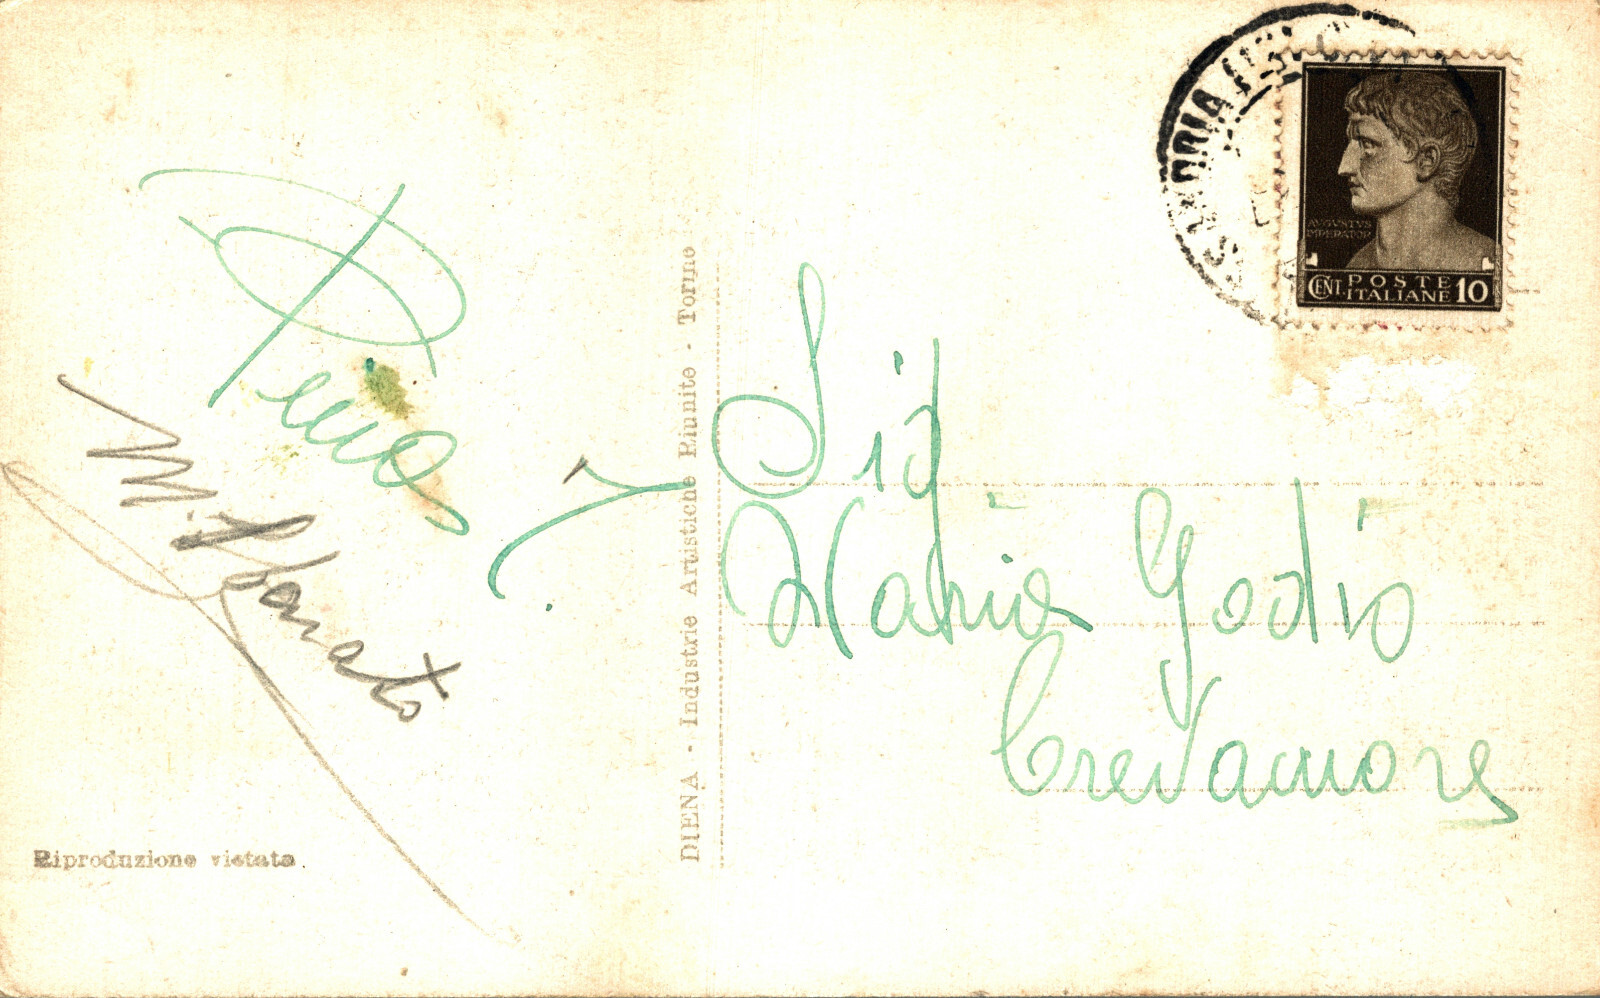 Pino
Riproduzione vietata
DIENA - Industrie Artistiche Riunite - Torino
AVGVSTVS
IMPERATOR
CENT. POSTE
ITALIANE 10
Sig
Maria Godio
Crevacuore